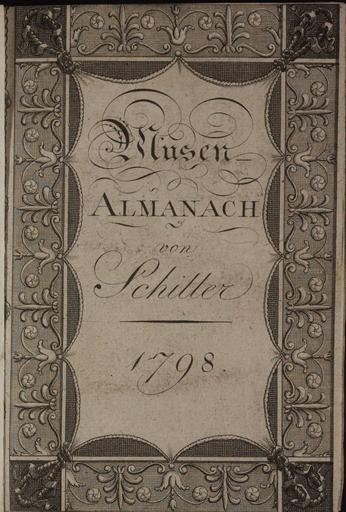 Musen-
ALMANACH
von
Schiller
1798.